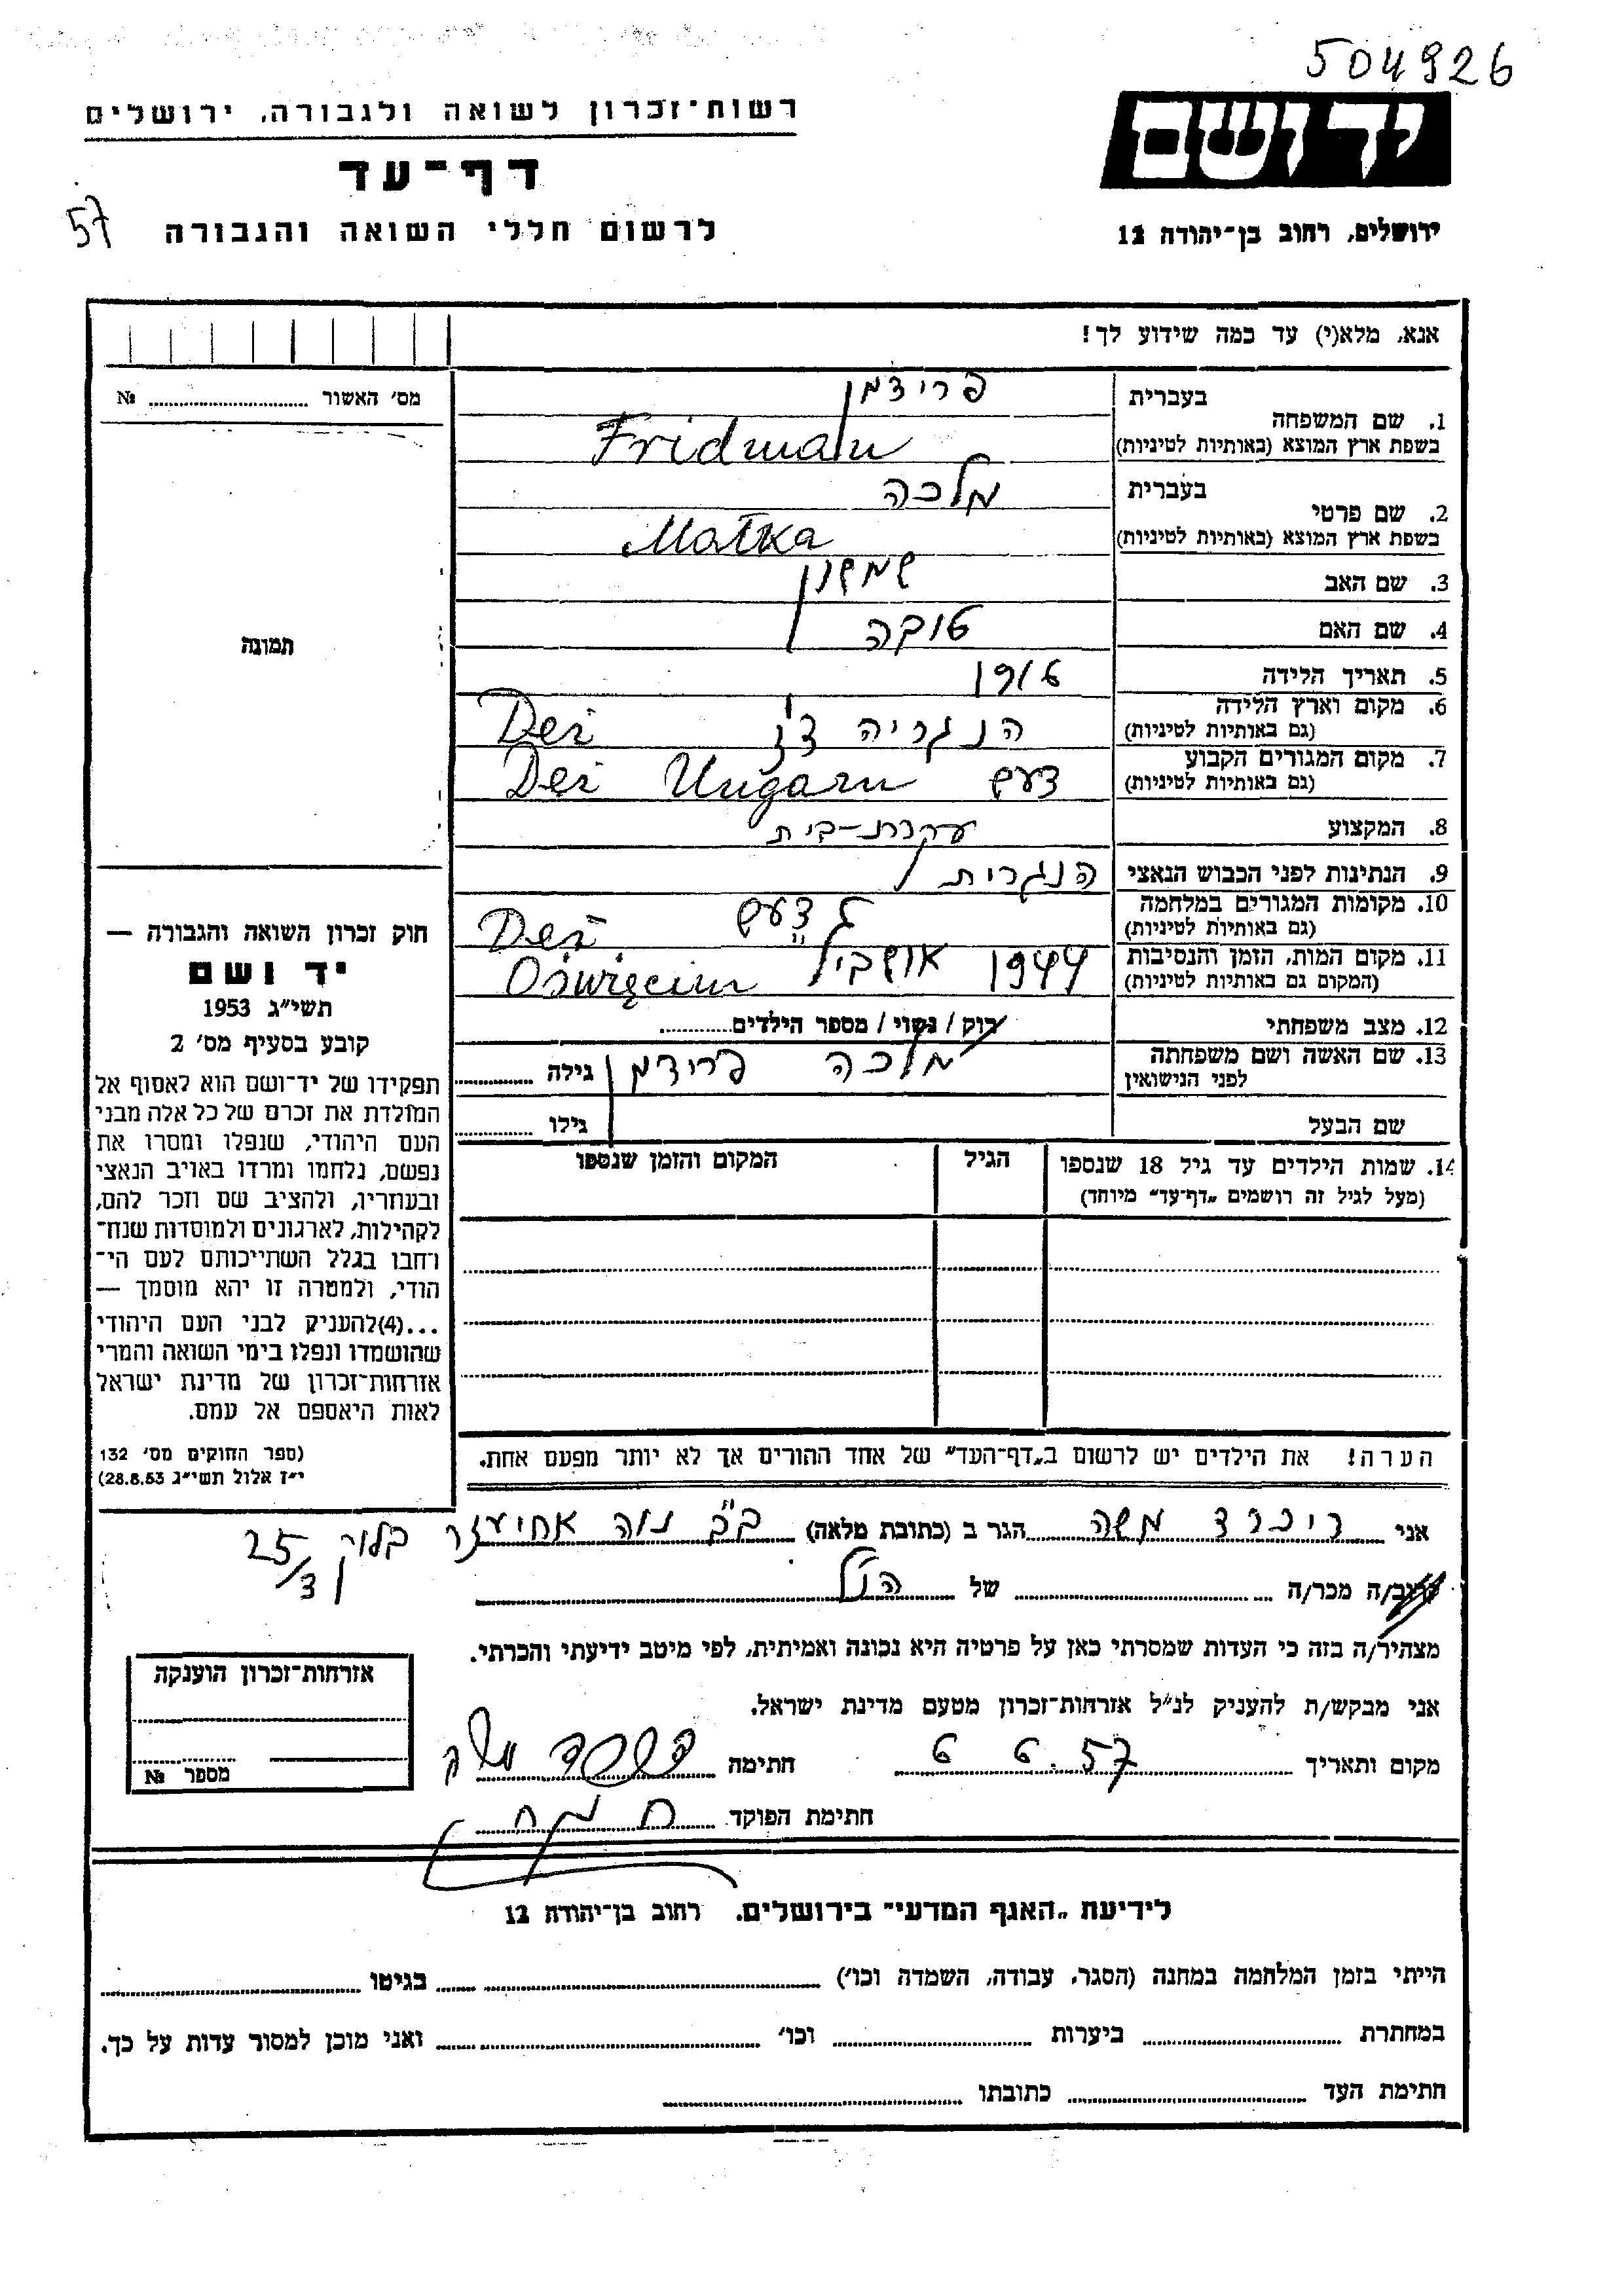 504926
רשות־זכרון לשואה ולגבורה, ירושלים
יד ושם
דף־עד
57
לרשום חללי השואה והגבורה
ירושלים, רחוב בן־יהודה 12
אנא, מלא(י) עד כמה שידוע לך!
מס' האשור № 
1. שם המשפחה
בעברית פרידמן
בשפת ארץ המוצא (באותיות לטיניות) Fridman
2. שם פרטי
בעברית מלכה
בשפת ארץ המוצא (באותיות לטיניות) Małka
3. שם האב שמשון
4. שם האם טובה
5. תאריך הלידה 1916
6. מקום וארץ הלידה
(גם באותיות לטיניות) הנגריה Dej
7. מקום המגורים הקבוע
(גם באותיות לטיניות) דעש Dej Ungarn
8. המקצוע עקרת-בית
9. הנתינות לפני הכבוש הנאצי הנגרית
10. מקומות המגורים במלחמה
(גם באותיות לטיניות) דעש Dej
11. מקום המות, הזמן והנסיבות
(המקום גם באותיות לטיניות) 1944 Oświęcim
12. מצב משפחתי רוק / נשוי / מספר הילדים
13. שם האשה ושם משפחתה
לפני הנישואין מלכה פרידמן גילה
שם הבעל גילו
14. שמות הילדים עד גיל 18 שנספו
(מעל לגיל זה רושמים „דף־עד" מיוחד)
הגיל
המקום והזמן שנספו
הערה! את הילדים יש לרשום ב„דף־העד" של אחד ההורים אך לא יותר מפעם אחת.
תמונה
חוק זכרון השואה והגבורה —
יד ושם
תשי״ג 1953
קובע בסעיף מס' 2
תפקידו של יד־ושם הוא לאסוף אל
המולדת את זכרם של כל אלה מבני
העם היהודי, שנפלו ומסרו את
נפשם, נלחמו ומרדו באויב הנאצי
ובעוזריו, ולהציב שם וזכר להם,
לקהילות, לארגונים ולמוסדות שנח־
רחבו בגלל השתייכותם לעם הי־
הודי, ולמטרה זו יהא מוסמך —
...(4)להעניק לבני העם היהודי
שהושמדו ונפלו בימי השואה והמרי
אזרחות־זכרון של מדינת ישראל
לאות היאספם אל עמם.
(ספר החוקים מס' 132
י״ז אלול תשי״ג 28.8.53)
אני ריכרד משה הגר ב (כתובת מלאה) ב״ב נוה אחיעזר בלוק 25/3
קרוב/ה מכר/ה של הנ״ל
מצהיר/ה בזה כי העדות שמסרתי כאן על פרטיה היא נכונה ואמיתית, לפי מיטב ידיעתי והכרתי.
אני מבקש/ת להעניק לנ״ל אזרחות־זכרון מטעם מדינת ישראל.
מקום ותאריך 6 6.57 חתימה
חתימת הפוקד
אזרחות־זכרון הוענקה
מספר №
לידיעת „האגף המדעי" בירושלים, רחוב בן־יהודה 12
הייתי בזמן המלחמה במחנה (הסגר, עבודה, השמדה וכו') בגיטו
במחתרת ביערות וכו' ואני מוכן למסור עדות על כך.
חתימת העד כתובתו